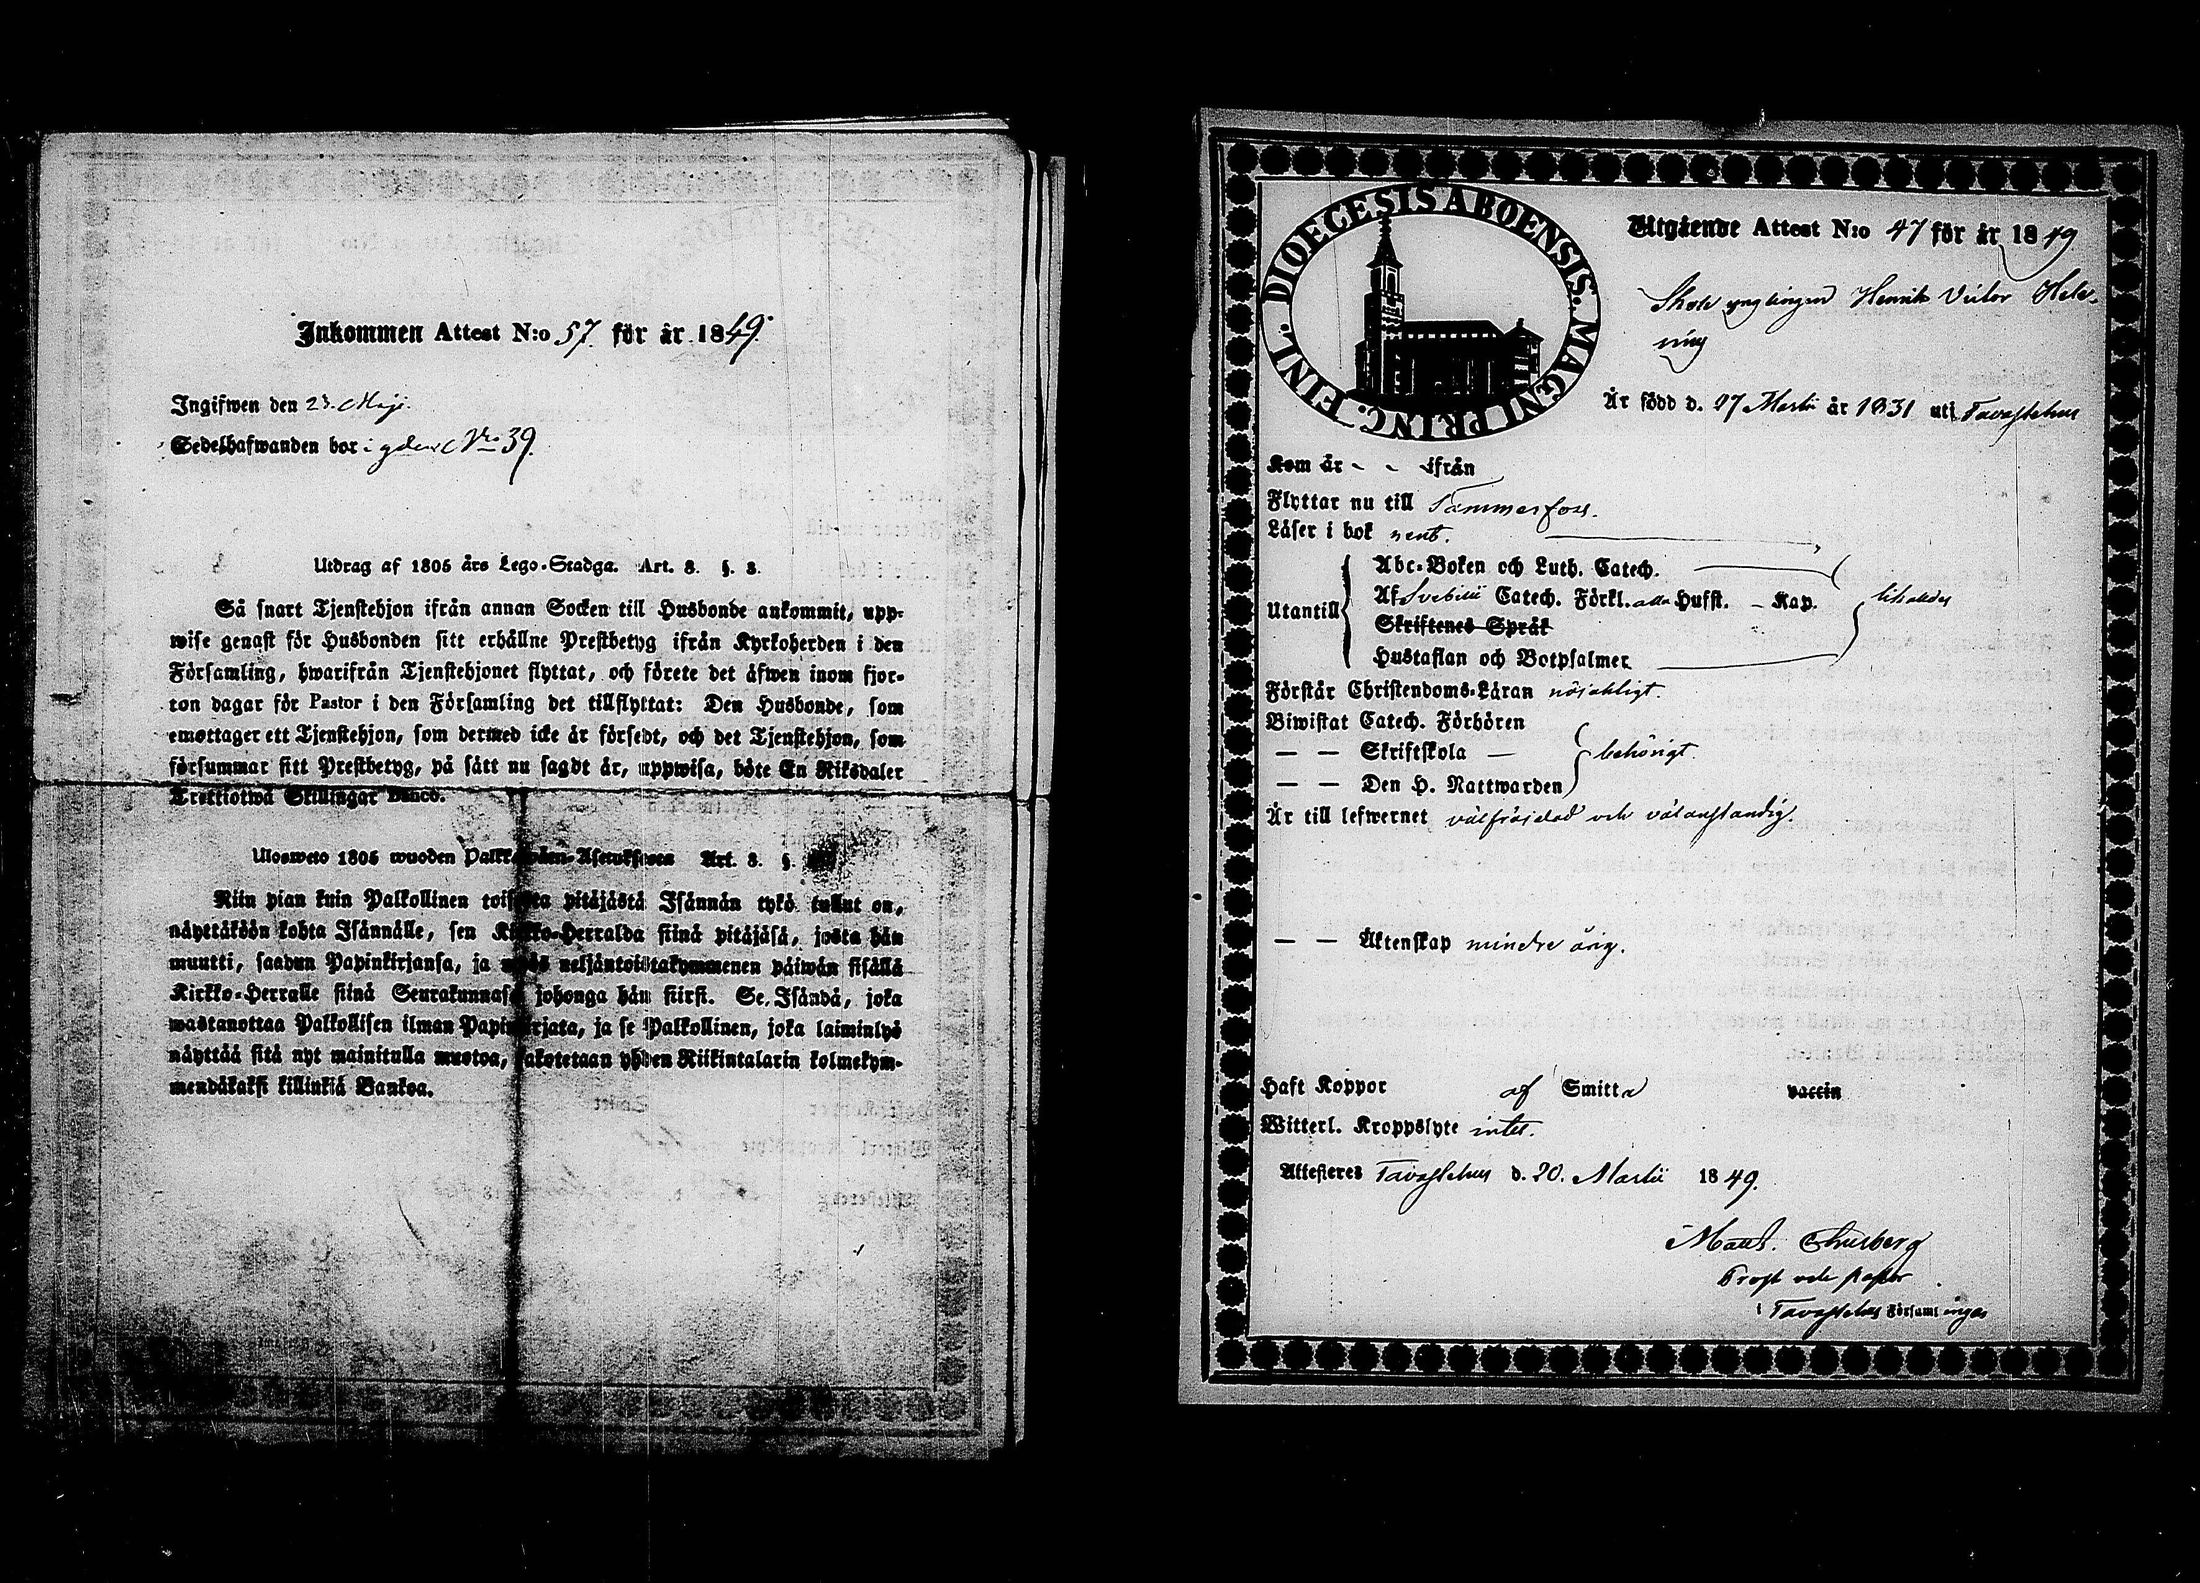 Inkommen Attest N:o 57. för år 1849.
Ingifwen den 23. Maji.
Sedelhafwanden bor i gården Nro 39.
Utdrag af 1805 års Lego-Stadga. Art. 8. §. 3.
Så snart Tjenstehjon ifrån annan Socken till Husbonde ankommit, upp-
wise genast för Husbonden sitt erhållne Prestbetyg ifrån Kyrkoherden i den
Församling, hwarifrån Tjenstehjonet flyttat, och förete det äfwen inom fjor-
ton dagar för Pastor i den Församling det tillflyttat: Den Husbonde, som
emottager ett Tjenstehjon, som dermed icke är försedt, och det Tjenstehjon, som
försummar sitt Prestbetyg, på sätt nu sagdt är, uppwisa, böte En Riksdaler
Trettiotwå Skillingar Banco.
Ulosweto 1805 wuoden Art. 8. §.
Niin pian kuin Palkollinen toisesta pitäjästä Isännän tykö tullut on,
näyttäköön kohta Isännälle, sen Kirkko-Herralda siinä pitäjäsä, josta hän
muutti, saadun Papinkirjansa, ja myös neljäntoistakymmenen päiwän sisällä
Kirkko-Herralle siinä Seurakunnasa, johonga hän siirsi. Se Isändä, joka
wastanottaa Palkollisen ilman Papinkirjata, ja se Palkollinen, joka laiminlyö
näyttää sitä nyt mainitulla muotoa, sakotetaan yhden Riikintalarin kolmekym-
mendäkaksi killinkiä Bankoa.
DIOECESIS ABOENSIS. MAGNI PRINC. FINL.
Utgående Attest N:o 47 för år 1849
Skole ynglingen Henrik Victor Hele-
nius
Är född d. 27 Martii år 1831 uti Tavastehus
Kom år - - ifrån
Flyttar nu till Tammerfors.
Läser i bok rent.
Abc-Boken och Luth. Catech.
Utantill Af Svebilii Catech. Förkl. alla Hufst. - Kap.
Skriftenes Språk
Hustaflan och Botpsalmer
Förstår Christendoms-Läran nöjaktigt.
Biwistat Catech. Förhören
— — Skriftskola — behörigt.
— — Den H. Nattwarden
Är till lefwernet välfräjdad och välanständig.
— — Äktenskap minderårig.
Haft Koppor af Smitta vaccin
Witterl. Kroppslyte intet.
Attesteres Tavastehus d. 20. Martii 1849.
Matts.
Prost och pastor
i Tavastehus Församlingar